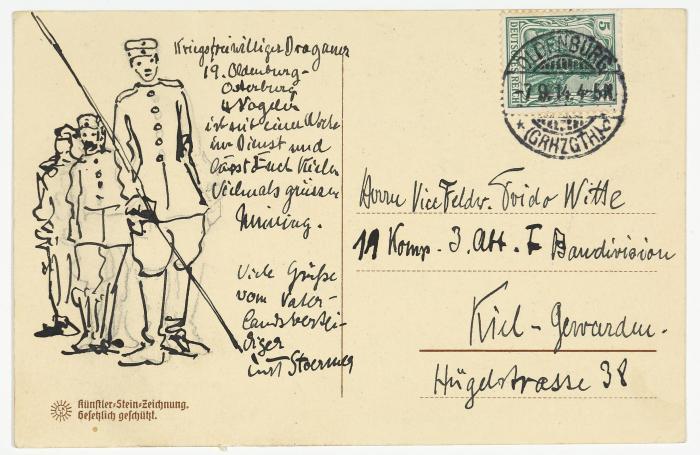 Kriegsfreiwilliger Dragoner
19. Oldenburg-
Osterburg
ist seit einer Woche
im Dienst und
lässt Euch Kieler
Vielmals grüssen
Viele Grüße
vom Vater-
landsvertei-
diger
Curt Stoermer
5
DEUTSCHES REICH
OLDENBURG
7.9.14.4-5N
*(GRHZGTH.)*
Herrn Vice Feldw. Guido Witte
11 Komp. 3. Att. I Baudivision
Kiel-Gewarden.
Hügelstrasse 38
Künstler-Stein-Zeichnung.
Gesetzlich geschützt.